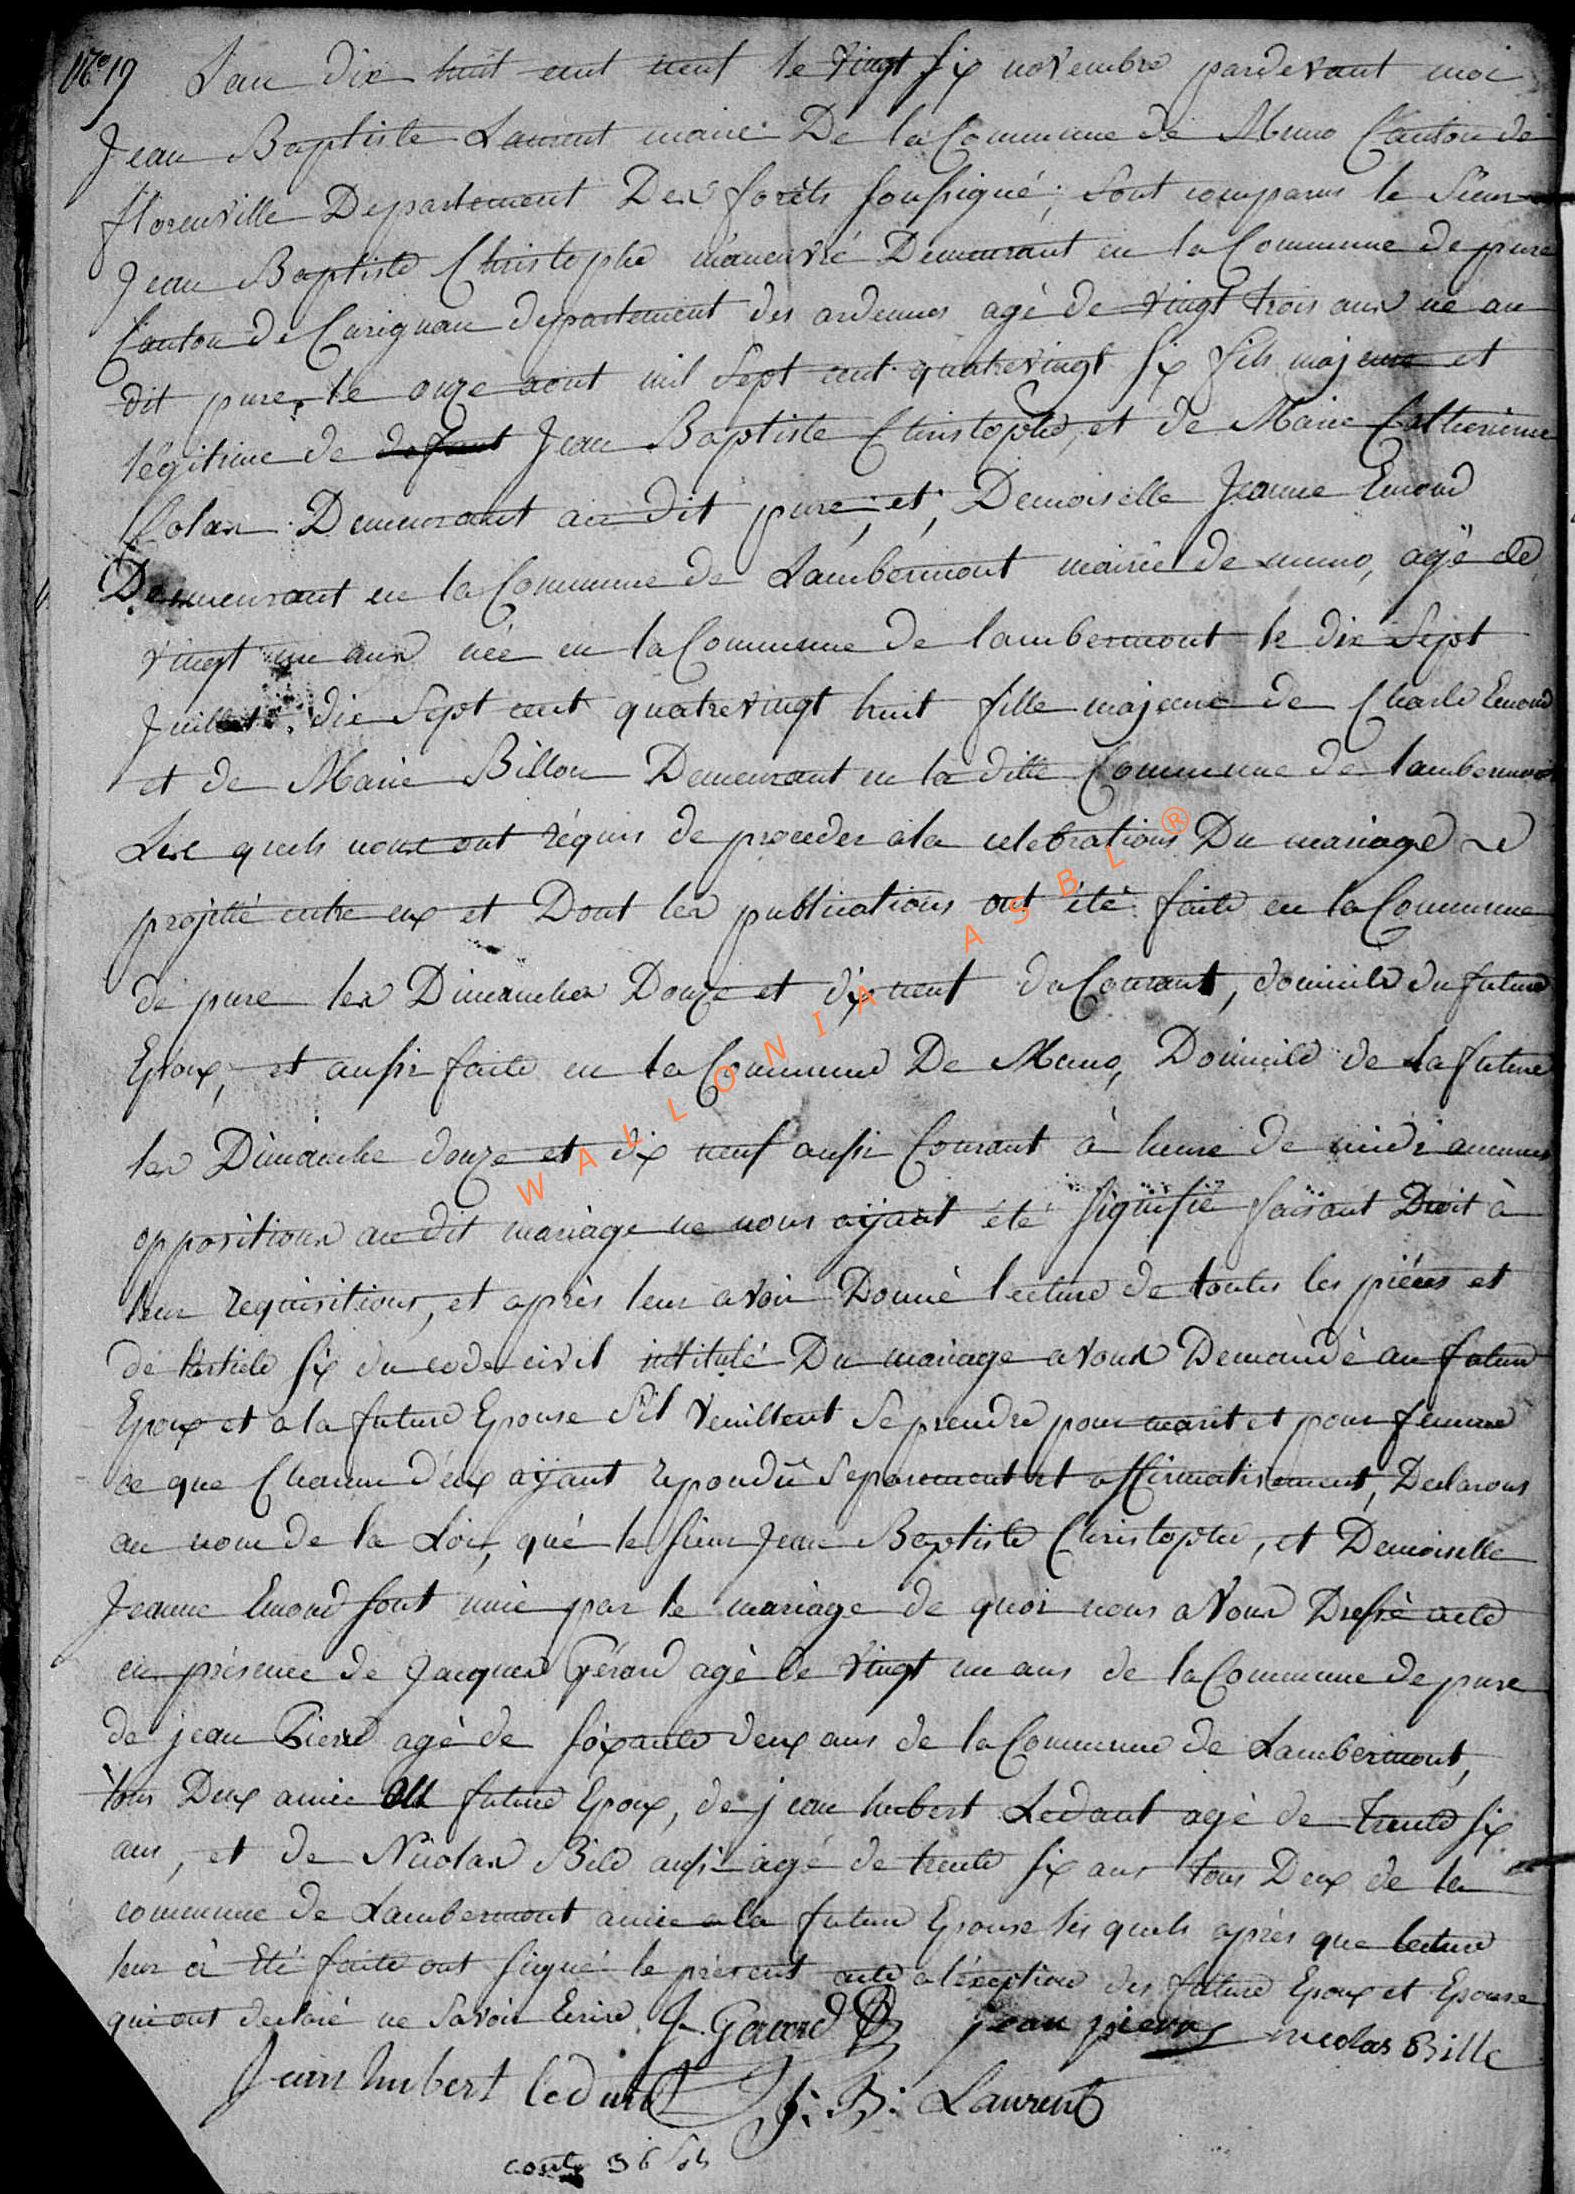 No 19 L'an dix huit cent neuf le vingt six novembre pardevant moi
Jean Baptiste Laurent maire De la Commune de Muno Canton de
florenville Departement Des forêts soussigné, sont comparus le Sieur
Jean Baptiste Christophe manœuvré Demeurant en la Commune de pure
Canton de Carignan departement des ardennes agé de vingt trois ans né au
dit pure, le onze aout mil Sept cent quatrevingt six fils majeure et
légitime de Jean Baptiste Christophe, et de Marie Catherinne
Colas Demeurant au dit pure, et, Demoiselle Jeanne Emond
Demeurant en la Commune de Lambermont mairie de muno, agé de
vingt un ans née en la Commune de lambermont le dix Sept
Juillet dix Sept cent quatrevingt huit fille majeure de Charle Emond
et de Marie Billon Demeurant en la ditte Commune de lambermont
Les quels nous ont réquis de proceder a la celebrations Du mariage
projetté entre eux et Dont les publications ont été faite en la Commune
de pure les Dimanches Douze et dix neuf du Courant, domicile du future
Epoux, et aussi faite en la Commune De Muno, Domicile de la future
les Dimanche douze et dix neuf aussi Courant à heure de midi aucunes
oppositions au dit mariage ne nous aÿant été signifié faisant Droit à
leur requisitions, et après leur avoir Donné lecture de toutes les piéces et
de l'article six du code civil intitulé Du mariage avons Demandé au future
Epoux et a la future Epouse s'il veuillent se prendre pour marit et pour femme
ce que Chacun d'eux aÿant repondu Separement et affirmativement, Declarons
au nom de la Loi, que le sieur Jean Baptiste Christophe, et Demoiselle
Jeanne Emond sont unie par le mariage de quoi nous avons Dressé acte
en présence de Jacques Gérard agé de vingt un ans de la Commune de pure
de jean Pierre agé de soixante deux ans de la Commune de Lambermont,
tous Deux amie au future Epoux, de jean hubert Ledant agé de trente six
ans, et de Nicolas Bile aussi agé de trente six ans tous Deux de la
commune de Lambermont amie a la future Epouse les quels après que lecture
leur à été faite ont signé le présent acte a l'exeption des future Epoux et Epouse
qui ont declaré ne Savoir Ecrire J. Gerard jean pierre nicolas Bille
Jean hubert ledant J: B: Laurent
WALLONIA ASBL®